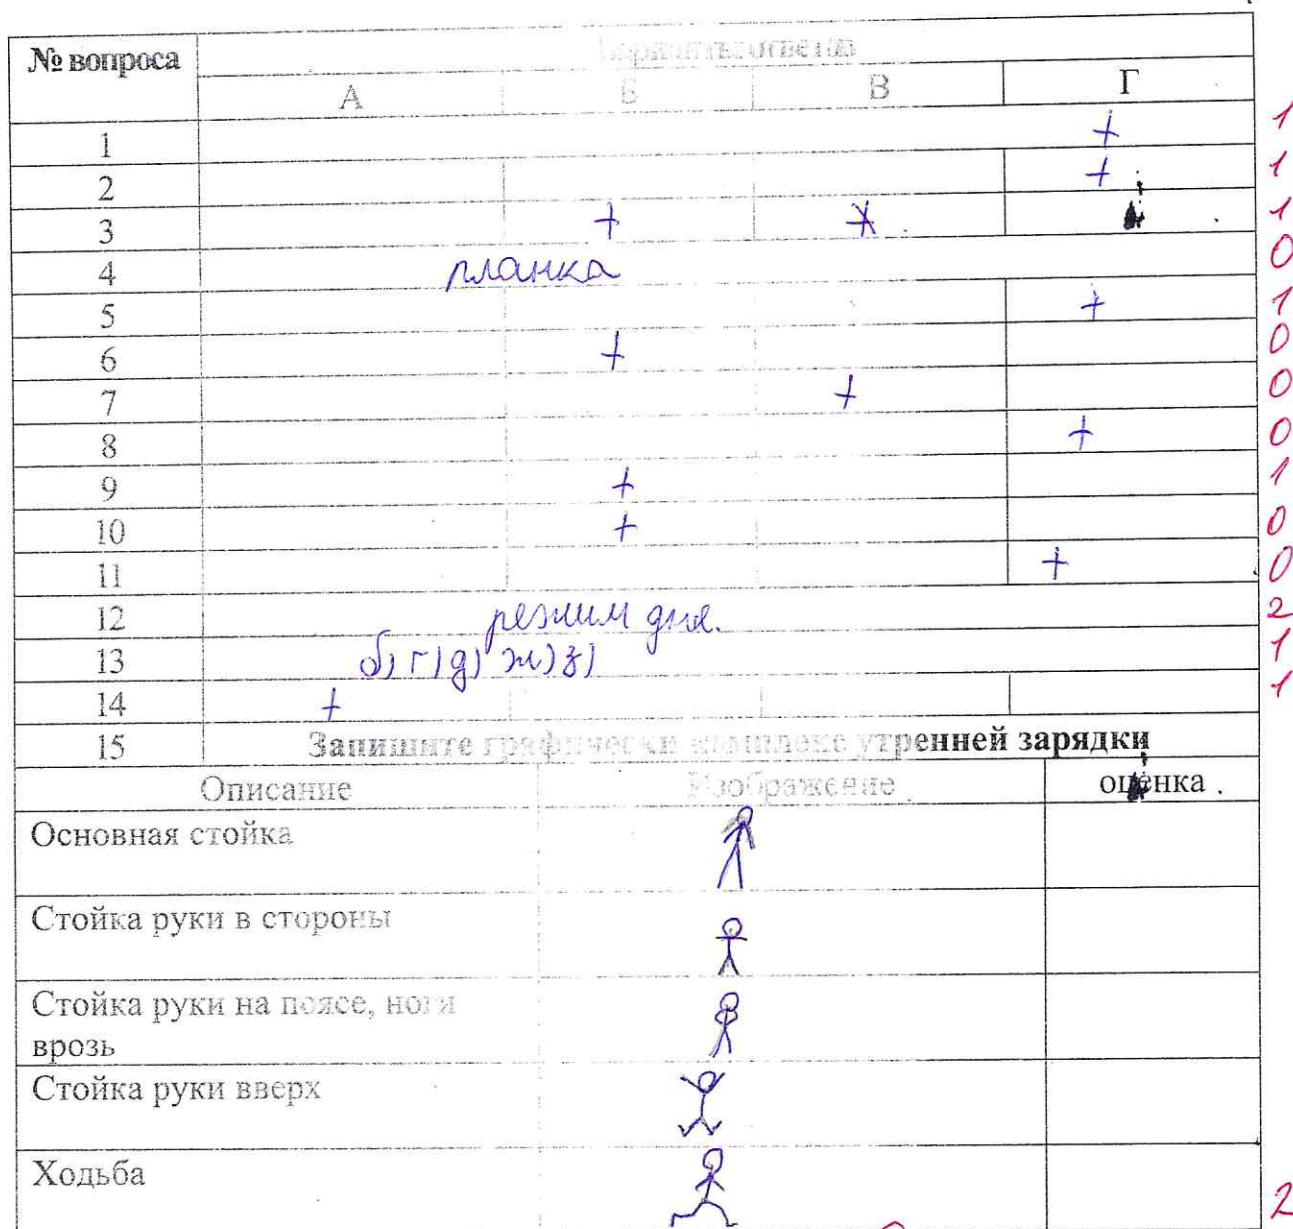 № вопроса Варианты ответов
А Б В Г
1 + 1
2 + 1
3 + 1
4 планка 0
5 + 1
6 + 0
7 + 0
8 + 0
9 + 1
10 + 0
11 + 0
12 режим дня. 2
13 б) г) д) ж) з) 1
14 + 1
15 Запишите графически комплекс утренней зарядки
Описание Изображение оценка
Основная стойка
Стойка руки в стороны
Стойка руки на поясе, ноги
врозь
Стойка руки вверх
Ходьба 2